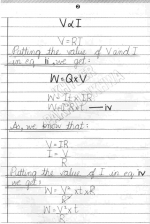 V∝I
V=RI
Putting the value of V and I
in eq ii, we get:
W=QxV
W=It x IR
W=I²Rxt — iv
As, we know that:
V=IR
I=V/R
Putting the value of I in eq iv
we get:
W=V²/R² xt x R
W=V²xt/R